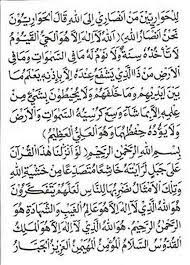 لِلْحَوَارِيّٖنَ مَنْ اَنْصَارِيْٓ اِلَى اللّٰهِ قَالَ الْحَوَارِيُّوْنَ
نَحْنُ اَنْصَارُ اللّٰهِ اَللّٰهُ لَآ اِلٰهَ اِلَّا هُوَ الْحَيُّ الْقَيُّوْمُ
لَا تَأْخُذُهٗ سِنَةٌ وَّلَا نَوْمٌ لَهٗ مَا فِي السَّمٰوٰتِ وَمَا فِي
الْاَرْضِ مَنْ ذَا الَّذِيْ يَشْفَعُ عِنْدَهٗٓ اِلَّا بِاِذْنِهٖ يَعْلَمُ مَا
بَيْنَ اَيْدِيْهِمْ وَمَا خَلْفَهُمْ وَلَا يُحِيْطُوْنَ بِشَيْءٍ مِّنْ
عِلْمِهٖٓ اِلَّا بِمَا شَآءَ وَسِعَ كُرْسِيُّهُ السَّمٰوٰتِ وَالْاَرْضَ
وَلَا يَئُوْدُهٗ حِفْظُهُمَا وَهُوَ الْعَلِيُّ الْعَظِيْمُ
بِسْمِ اللّٰهِ الرَّحْمٰنِ الرَّحِيْمِ لَوْ اَنْزَلْنَا هٰذَا الْقُرْاٰنَ
عَلٰى جَبَلٍ لَّرَاَيْتَهٗ خَاشِعًا مُّتَصَدِّعًا مِّنْ خَشْيَةِ اللّٰهِ
وَتِلْكَ الْاَمْثَالُ نَضْرِبُهَا لِلنَّاسِ لَعَلَّهُمْ يَتَفَكَّرُوْنَ
هُوَ اللّٰهُ الَّذِيْ لَآ اِلٰهَ اِلَّا هُوَ عَالِمُ الْغَيْبِ وَالشَّهَادَةِ هُوَ
الرَّحْمٰنُ الرَّحِيْمُ هُوَ اللّٰهُ الَّذِيْ لَآ اِلٰهَ اِلَّا هُوَ الْمَلِكُ
الْقُدُّوْسُ السَّلَامُ الْمُؤْمِنُ الْمُهَيْمِنُ الْعَزِيْزُ الْجَبَّارُ